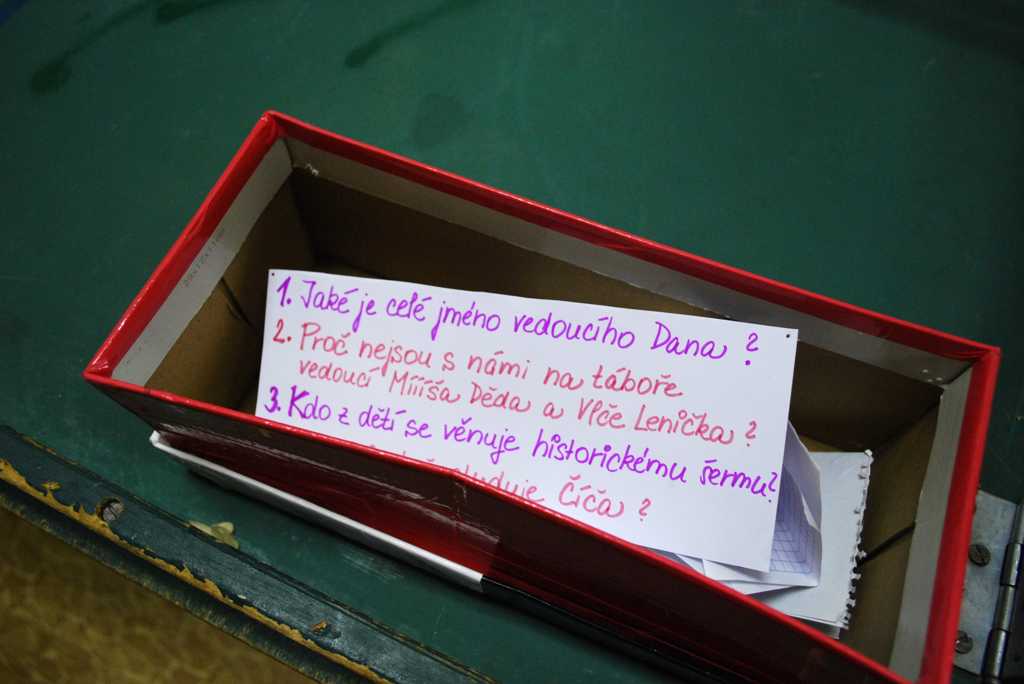 1. Jaké je celé jméno vedoucího Dana?
2. Proč nejsou s námi na táboře
vedoucí Míííša Děda a Vlče Lenička?
3. Kdo z dětí se věnuje historickému šermu?
Číča?